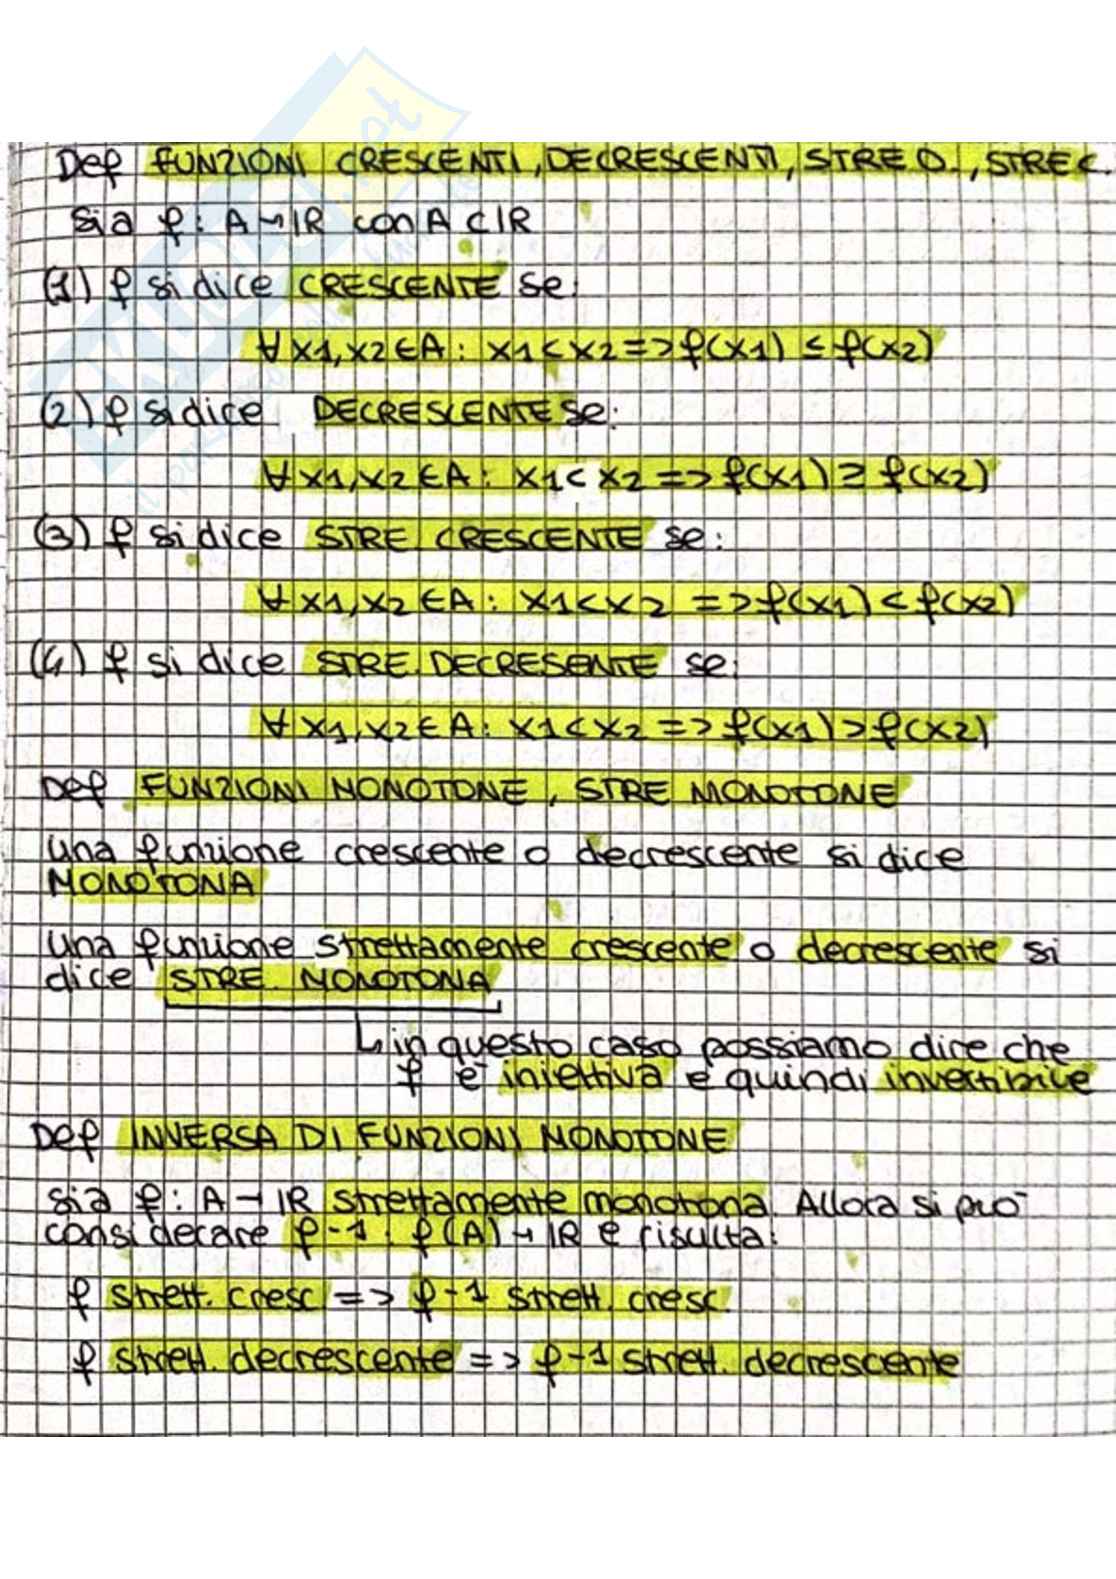 Def FUNZIONI CRESCENTI, DECRESCENTI, STRE D., STRE C.
Sia f: A→IR con A⊂IR
(1) f si dice CRESCENTE se:
∀x1,x2∈A: x1<x2=>f(x1)≤f(x2)
(2) f si dice DECRESCENTE se:
∀x1,x2∈A: x1<x2=>f(x1)≥f(x2)
(3) f si dice STRE CRESCENTE se:
∀x1,x2∈A: x1<x2 =>f(x1)<f(x2)
(4) f si dice STRE. DECRESENTE se:
∀x1,x2∈A: x1<x2 =>f(x1)>f(x2)
Def FUNZIONI MONOTONE, STRE MONOTONE
Una funzione crescente o decrescente si dice
MONOTONA
Una funzione strettamente crescente o decrescente si
dice STRE. MONOTONA
↳ in questo caso possiamo dire che
f è iniettiva e quindi invertibile
Def INVERSA DI FUNZIONI MONOTONE
Sia f: A→IR strettamente monotona. Allora si può
considerare f-1: f(A)→IR e risulta:
f strett. cresc => f-1 strett. cresc.
f strett. decrescente => f-1 strett. decrescente